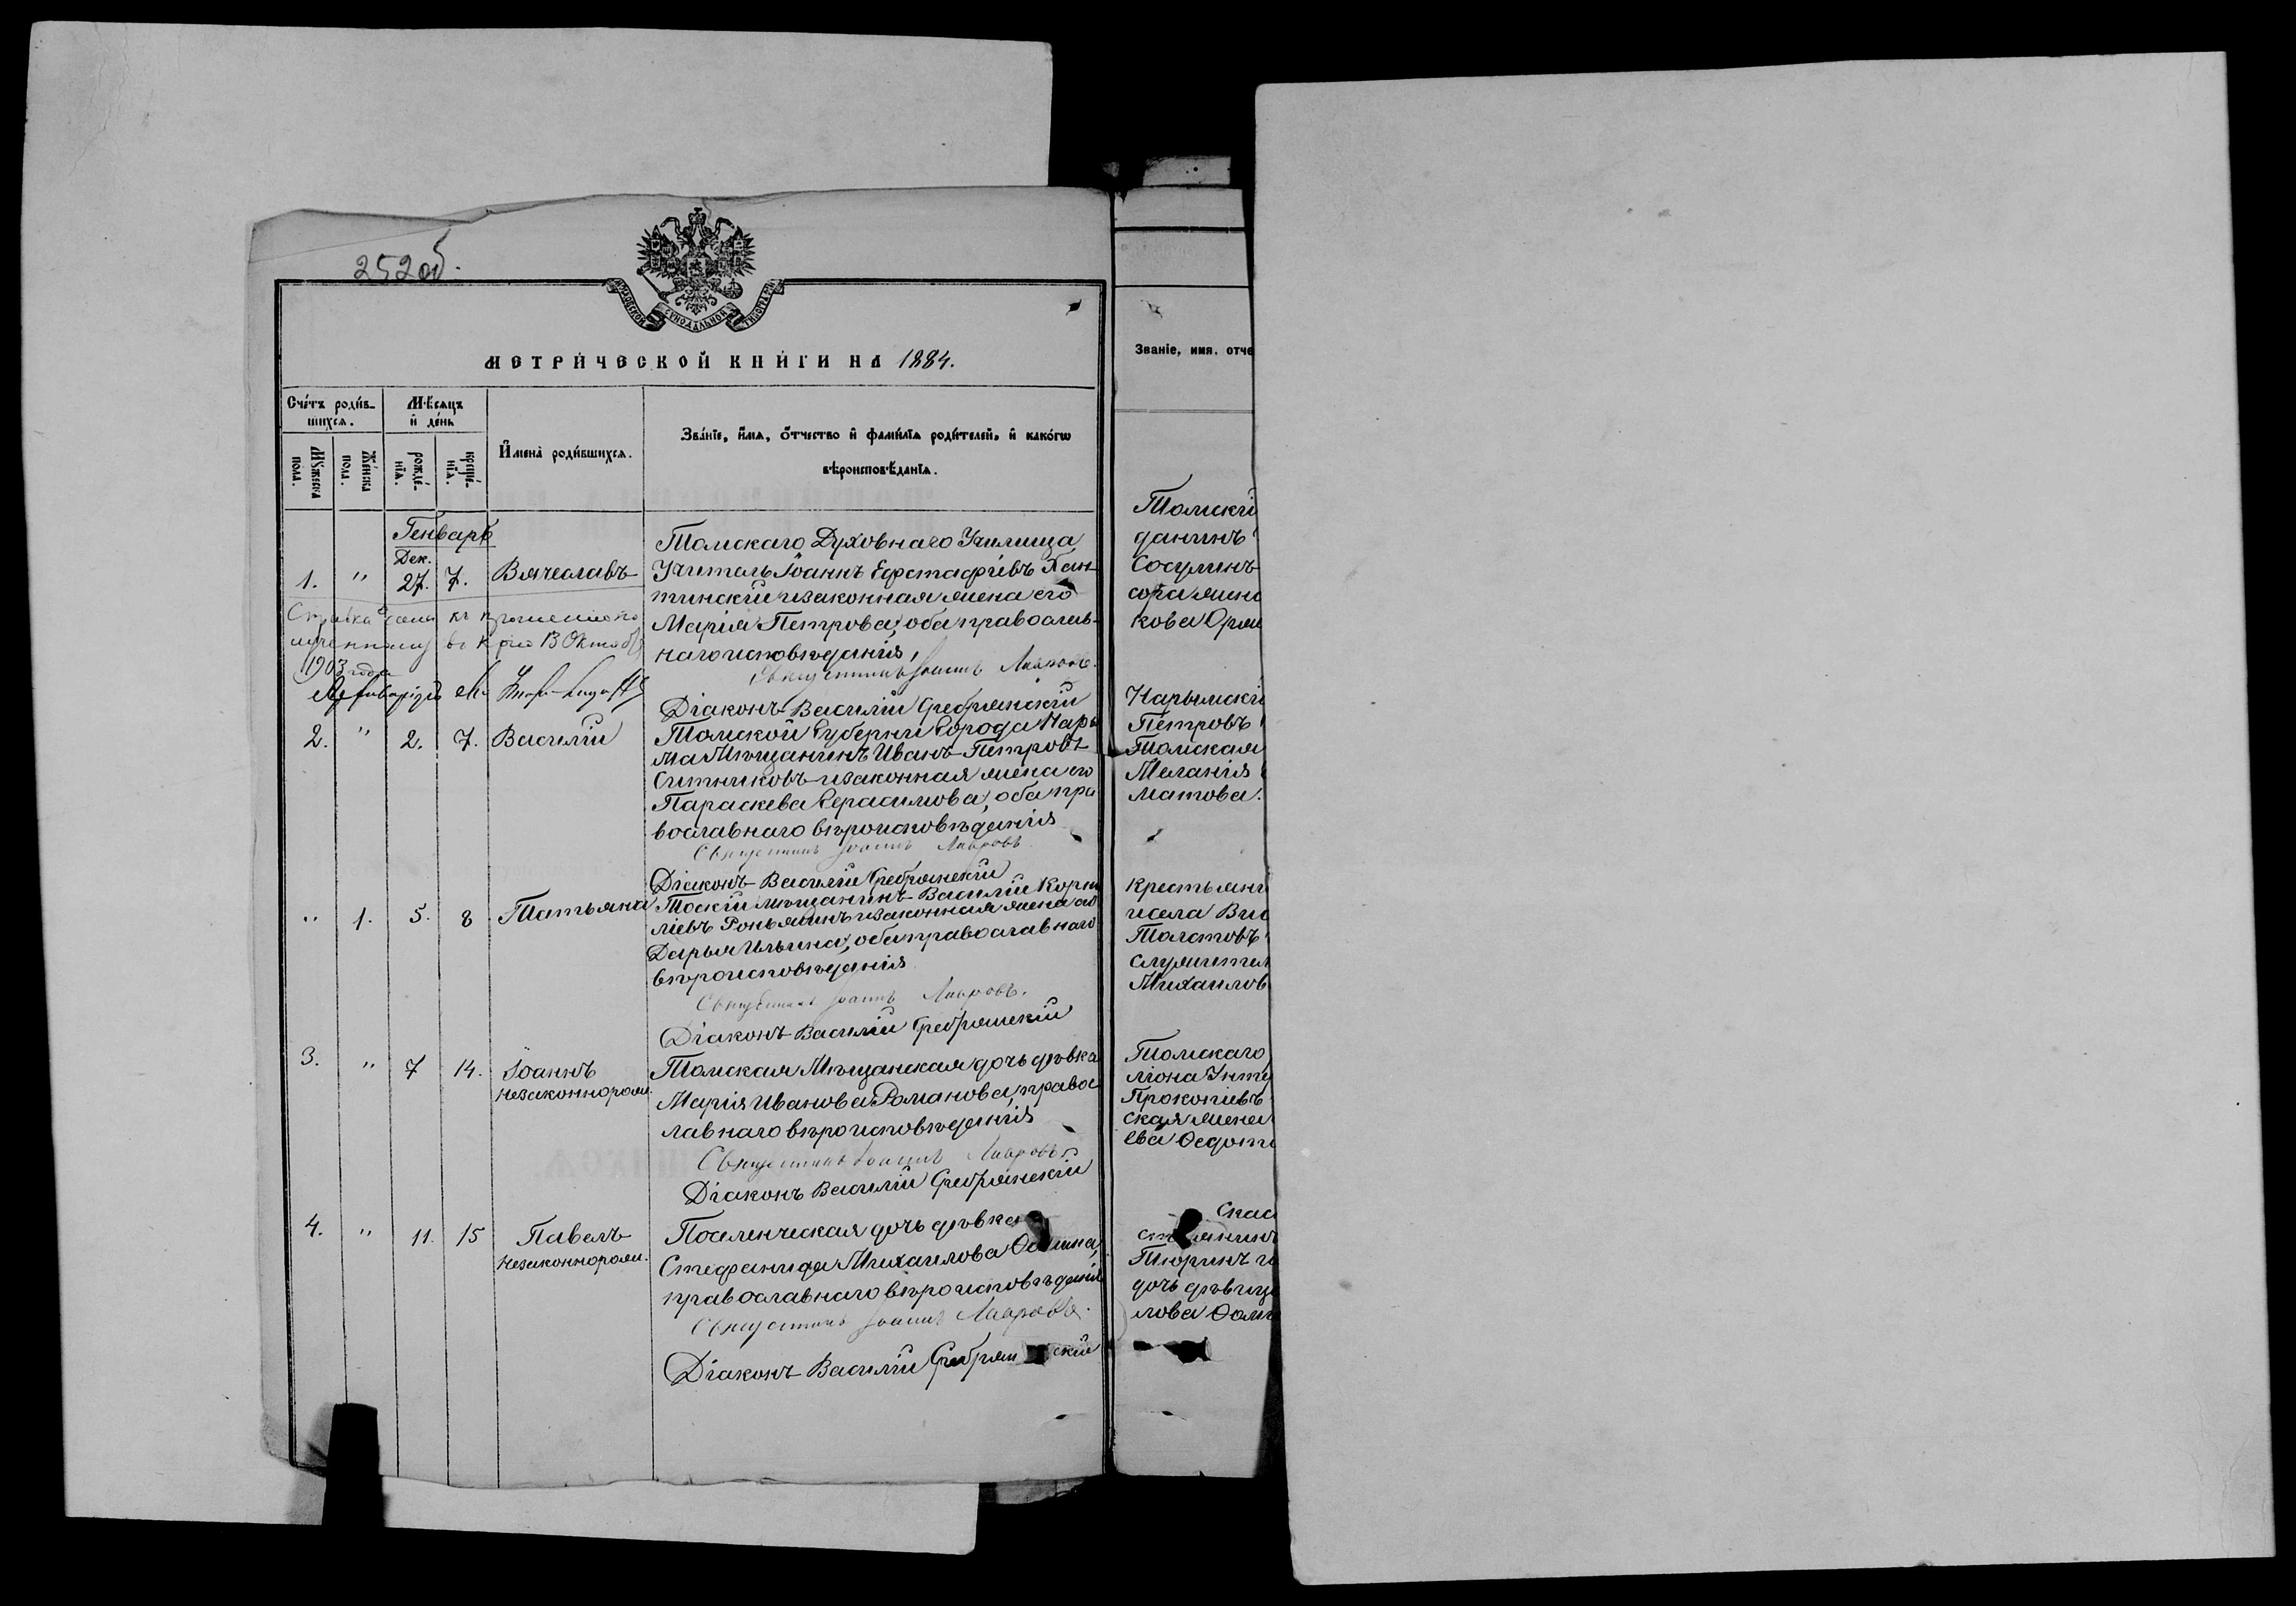 252об.
МЕТРИЧЕСКОЙ КНИГИ НА 1884.
Счетъ родив-
шихся.
Мѣсяцъ
и день
Мужеска
пола.
Женска
пола.
рожде-
нія.
креще-
нія.
Имена родившихся.
Званіе, имя, отчество и фамилія родителей, и какого
вѣроисповѣданія.
Генварь
Дек.
1. " 27. 7. Вячеславъ
Томскаго Духовнаго Училища
Учитель Іоаннъ Евстафіевъ
тинскій и законная жена его
Марія Петрова, оба православ-
наго исповѣданія,
Священникъ Іоаннъ Лавровъ.
Діаконъ Василій Сребрянскій
1903 года
2. " 2. 7. Василій
Томской Губерніи Города Нары
ма Мѣщанинъ Иванъ Петровъ
Ситниковъ и законная жена его
Параскева Герасимова, оба пра
вославнаго вѣроисповѣданія
Священникъ Іоаннъ Лавровъ
Діаконъ Василій Сребрянскій
" 1. 5. 8 Татьяна
Тоскій мѣщанинъ Василій Корни
ліевъ и законная жена его
Дарья Ильина, оба православнаго
вѣроисповѣданія
Священникъ Іоаннъ Лавровъ.
Діаконъ Василій Сребрянскій
3. " 7 14. Іоаннъ
незаконнорож.
Томская Мѣщанская дочь дѣвка
Марія Иванова Романова, правос
лавнаго вѣроисповѣданія
Священникъ Іоаннъ Лавровъ
Діаконъ Василій Сребрянскій
4. " 11. 15 Павелъ
незаконнорож.
Поселенческая дочь дѣвка
Стефанида Михаилова
православнаго вѣроисповѣданія
Священникъ Іоаннъ Лавровъ.
Діаконъ Василій
Званіе, имя, отче
Томскій
данинъ
Сосулинъ
сора жена
кова
Нарымскій
Петровъ
Томская
Меланія
матова.
крестьяни
исела
Толстовъ
служител
Михаилов
Томскаго
ліона Унте
Прокопіевъ
ская жена
ева Ѳедот
Тюринъ
дочь дѣвиц
лова